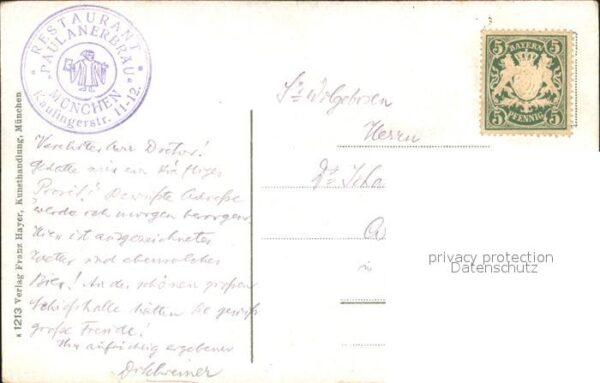 RESTAURANT
PAULANERBRÄU
MÜNCHEN
Kaufingerstr. 11-12.
BAYERN
5 5
5 PFENNIG 5
Sr. Wolgeboren
Herrn
Dr. Scha
in
privacy protection
Datenschutz
Verehrter Herr Doctor!
Gestatte mir ein kräftiges
Prosit! Bewußte Adresse
werde ich morgen besorgen.
Hier ist ausgezeichnetes
Wetter und ebensolches
Bier! An der schönen großen
Schießhalle hätten Sie gewiß
große Freude!
Ihr aufrichtig ergebener
Dr. Schreiner
1213 Verlag Franz Hayer, Kunsthandlung, München